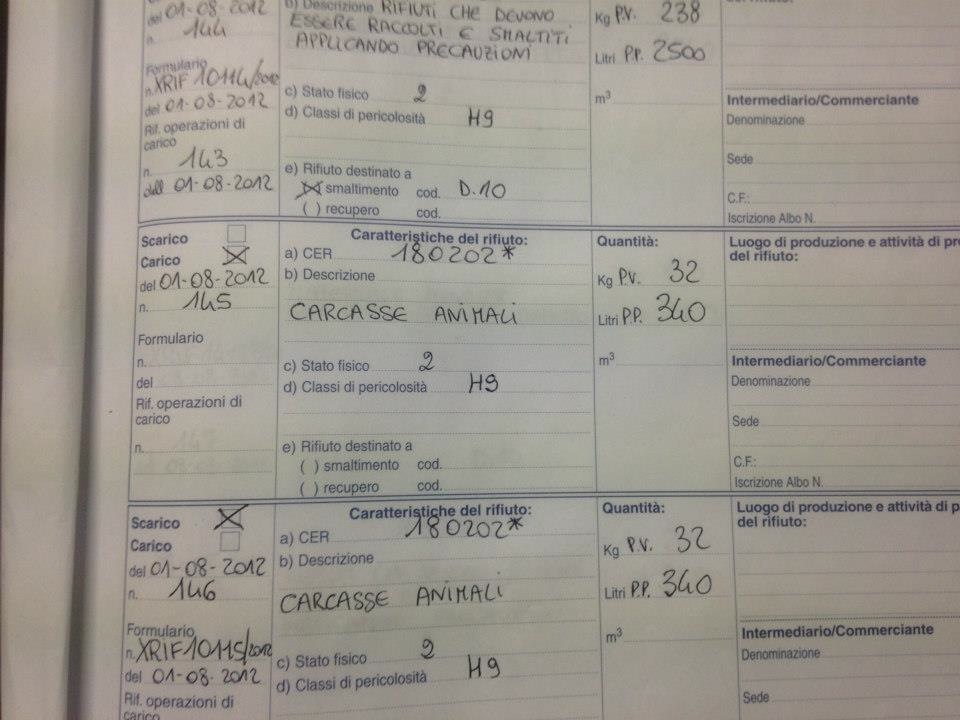 del 01-08-2012
n. 144
Formulario
n. XRIF 10114/2012
del 01-08-2012
Rif. operazioni di
carico
n. 143
dell 01-08-2012
b) Descrizione RIFIUTI CHE DEVONO
ESSERE RACCOLTI E SMALTITI
APPLICANDO PRECAUZIONI
c) Stato fisico 2
d) Classi di pericolosità H9
e) Rifiuto destinato a
smaltimento cod. D.10
( ) recupero cod.
Kg P.V. 238
Litri P.P. 2500
m³
Intermediario/Commerciante
Denominazione
Sede
C.F.:
Iscrizione Albo N.
Scarico
Carico
del 01-08-2012
n. 145
Formulario
n.
del
Rif. operazioni di
carico
n.
Caratteristiche del rifiuto:
a) CER 180202*
b) Descrizione
CARCASSE ANIMALI
c) Stato fisico 2
d) Classi di pericolosità H9
e) Rifiuto destinato a
( ) smaltimento cod.
( ) recupero cod.
Quantità:
Kg P.V. 32
Litri P.P. 340
m³
Luogo di produzione e attività di
del rifiuto:
Intermediario/Commerciante
Denominazione
Sede
C.F.:
Iscrizione Albo N.
Scarico
Carico
del 01-08-2012
n. 146
Formulario
n. XRIF10115/2012
del 01-08-2012
Rif. operazioni di
carico
Caratteristiche del rifiuto:
a) CER 180202*
b) Descrizione
CARCASSE ANIMALI
c) Stato fisico 2
d) Classi di pericolosità H9
Quantità:
Kg P.V. 32
Litri P.P. 340
m³
Luogo di produzione e attività di
del rifiuto:
Intermediario/Commerciante
Denominazione
Sede